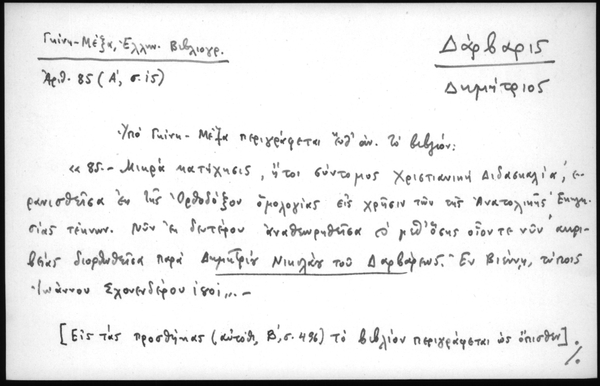 Γκίνη-Μέξα, Ἑλλην. Βιβλιογρ.
Δάρβαρις
Ἀριθ. 85 (Α΄, σ. 15)
Δημήτριος
Ὑπὸ Γκίνη-Μέξα περιγράφεται ὑπ' ἀν. τὸ βιβλίον:
«85.- Μικρὰ κατήχησις, ἤτοι σύντομος Χριστιανικὴ Διδασκαλία, ἐ-
ρανισθεῖσα ἐκ τῆς Ὀρθοδόξου ὁμολογίας εἰς χρῆσιν τῶν τῆς Ἀνατολικῆς Ἐκκλη-
σίας τέκνων. Νῦν ἐκ δευτέρου ἀναθεωρηθεῖσα καὶ μεθ' ὅσης οἷόντε νῦν ἀκρι-
βείας διορθωθεῖσα παρὰ Δημητρίου Νικολάου τοῦ Δαρβάρεως. Ἐν Βιέννῃ, τύποις
Ἰωάννου Σχονενδέρου
[Εἰς τὰς προσθήκας (αὐτόθι, Β΄, σ. 496) τὸ βιβλίον περιγράφεται ὡς ὄπισθεν]
./.